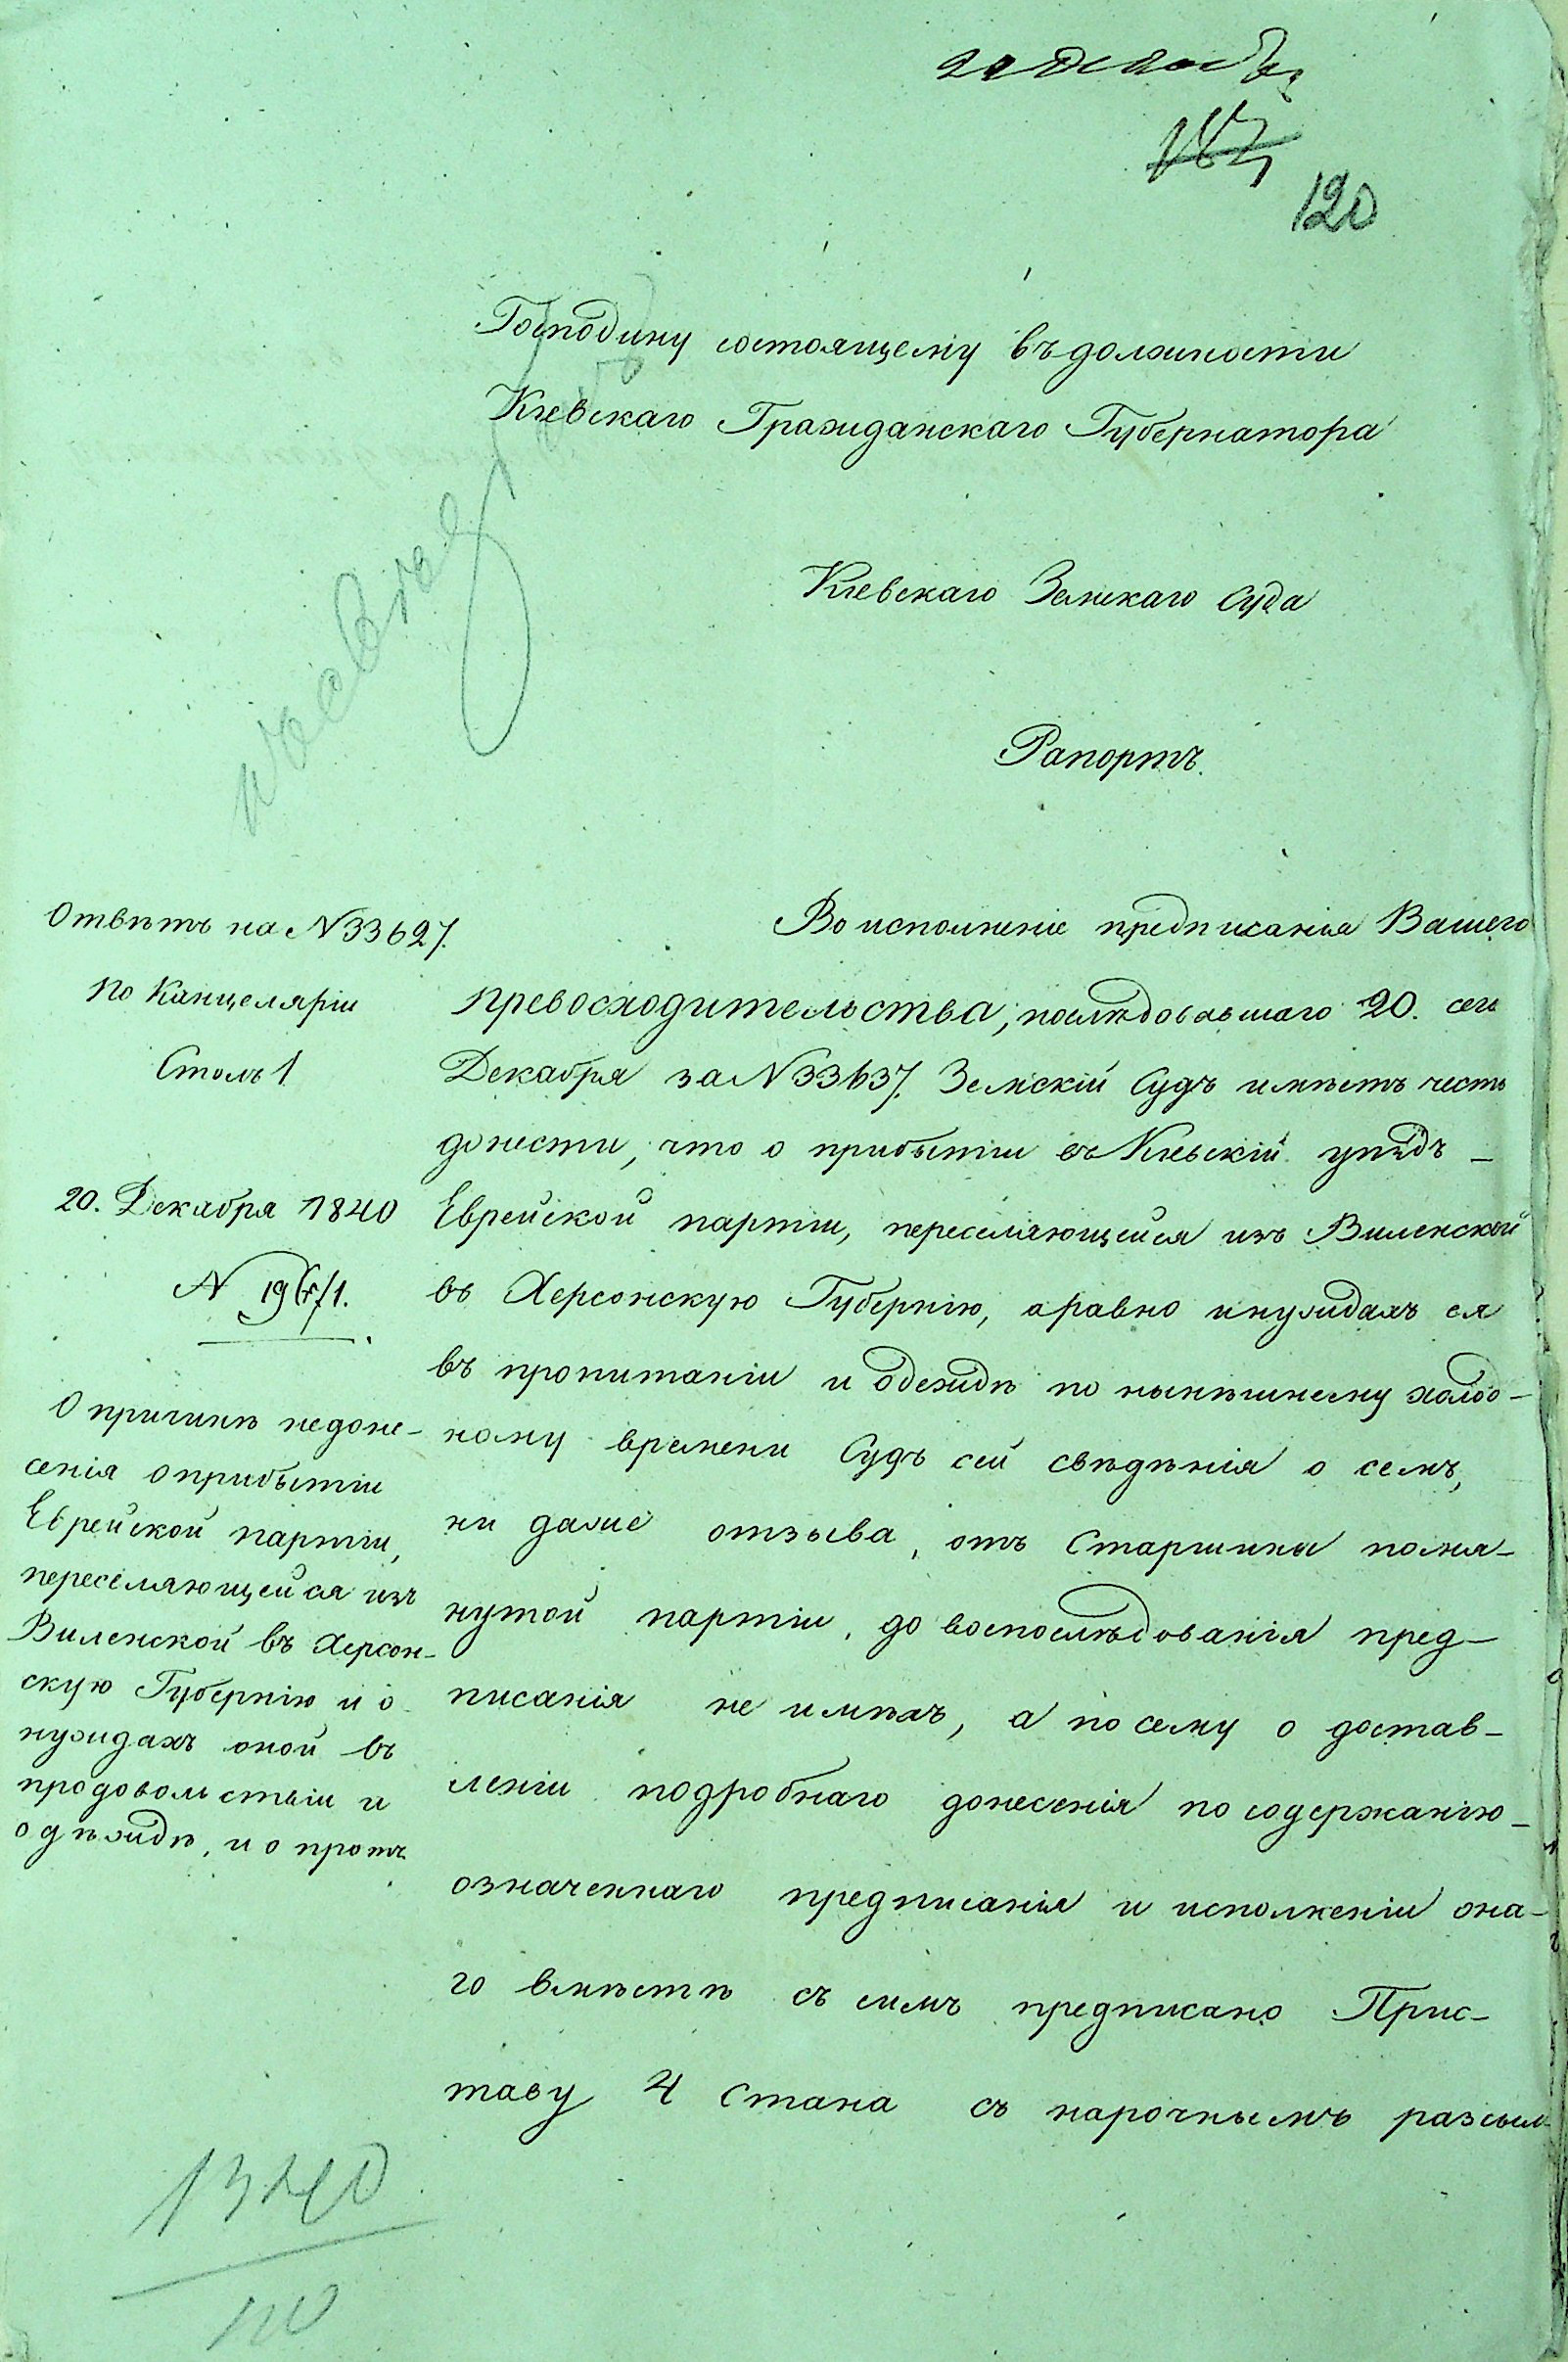 120
Господину состоящему въ должности
Кіевскаго Гражданскаго Губернатора
Кіевскаго Земскаго Суда
Рапортъ.
Отвѣтъ на N 33627.
По Канцеляріи
Столъ 1
20. Декабря 1840
О причинѣ недоне-
сенія о прибытіи
Еврейской партіи,
переселяющейся изъ
Виленской въ Херсон-
скую Губернію и о
нуждахъ оной въ
продовольствіи и
одѣждѣ, и о протч.
Во исполненіе предписанія Вашего
превосходительства, послѣдовавшаго 20. сего
Декабря за N 33637. Земскій Судъ имѣетъ честь
донести, что о прибытіи въ Кіевскій уѣздъ –
Еврейской партіи, переселяющейся изъ Виленской
въ Херсонскую Губернію, а равно и нуждахъ ея
въ пропитаніи и одеждѣ по нынѣшнему холод-
ному времени Судъ сей свѣдѣнія о семъ,
ни даже отзыва, отъ Старшины помя-
нутой партіи, до воспослѣдованія пред-
писанія не имѣлъ, а по сему о достав-
леніи подробнаго донесенія по содержанію –
означеннаго предписанія и исполненіи она-
го вмѣстѣ съ симъ предписано Прис-
таву 4 Стана съ нарочнымъ разсыл-
1340